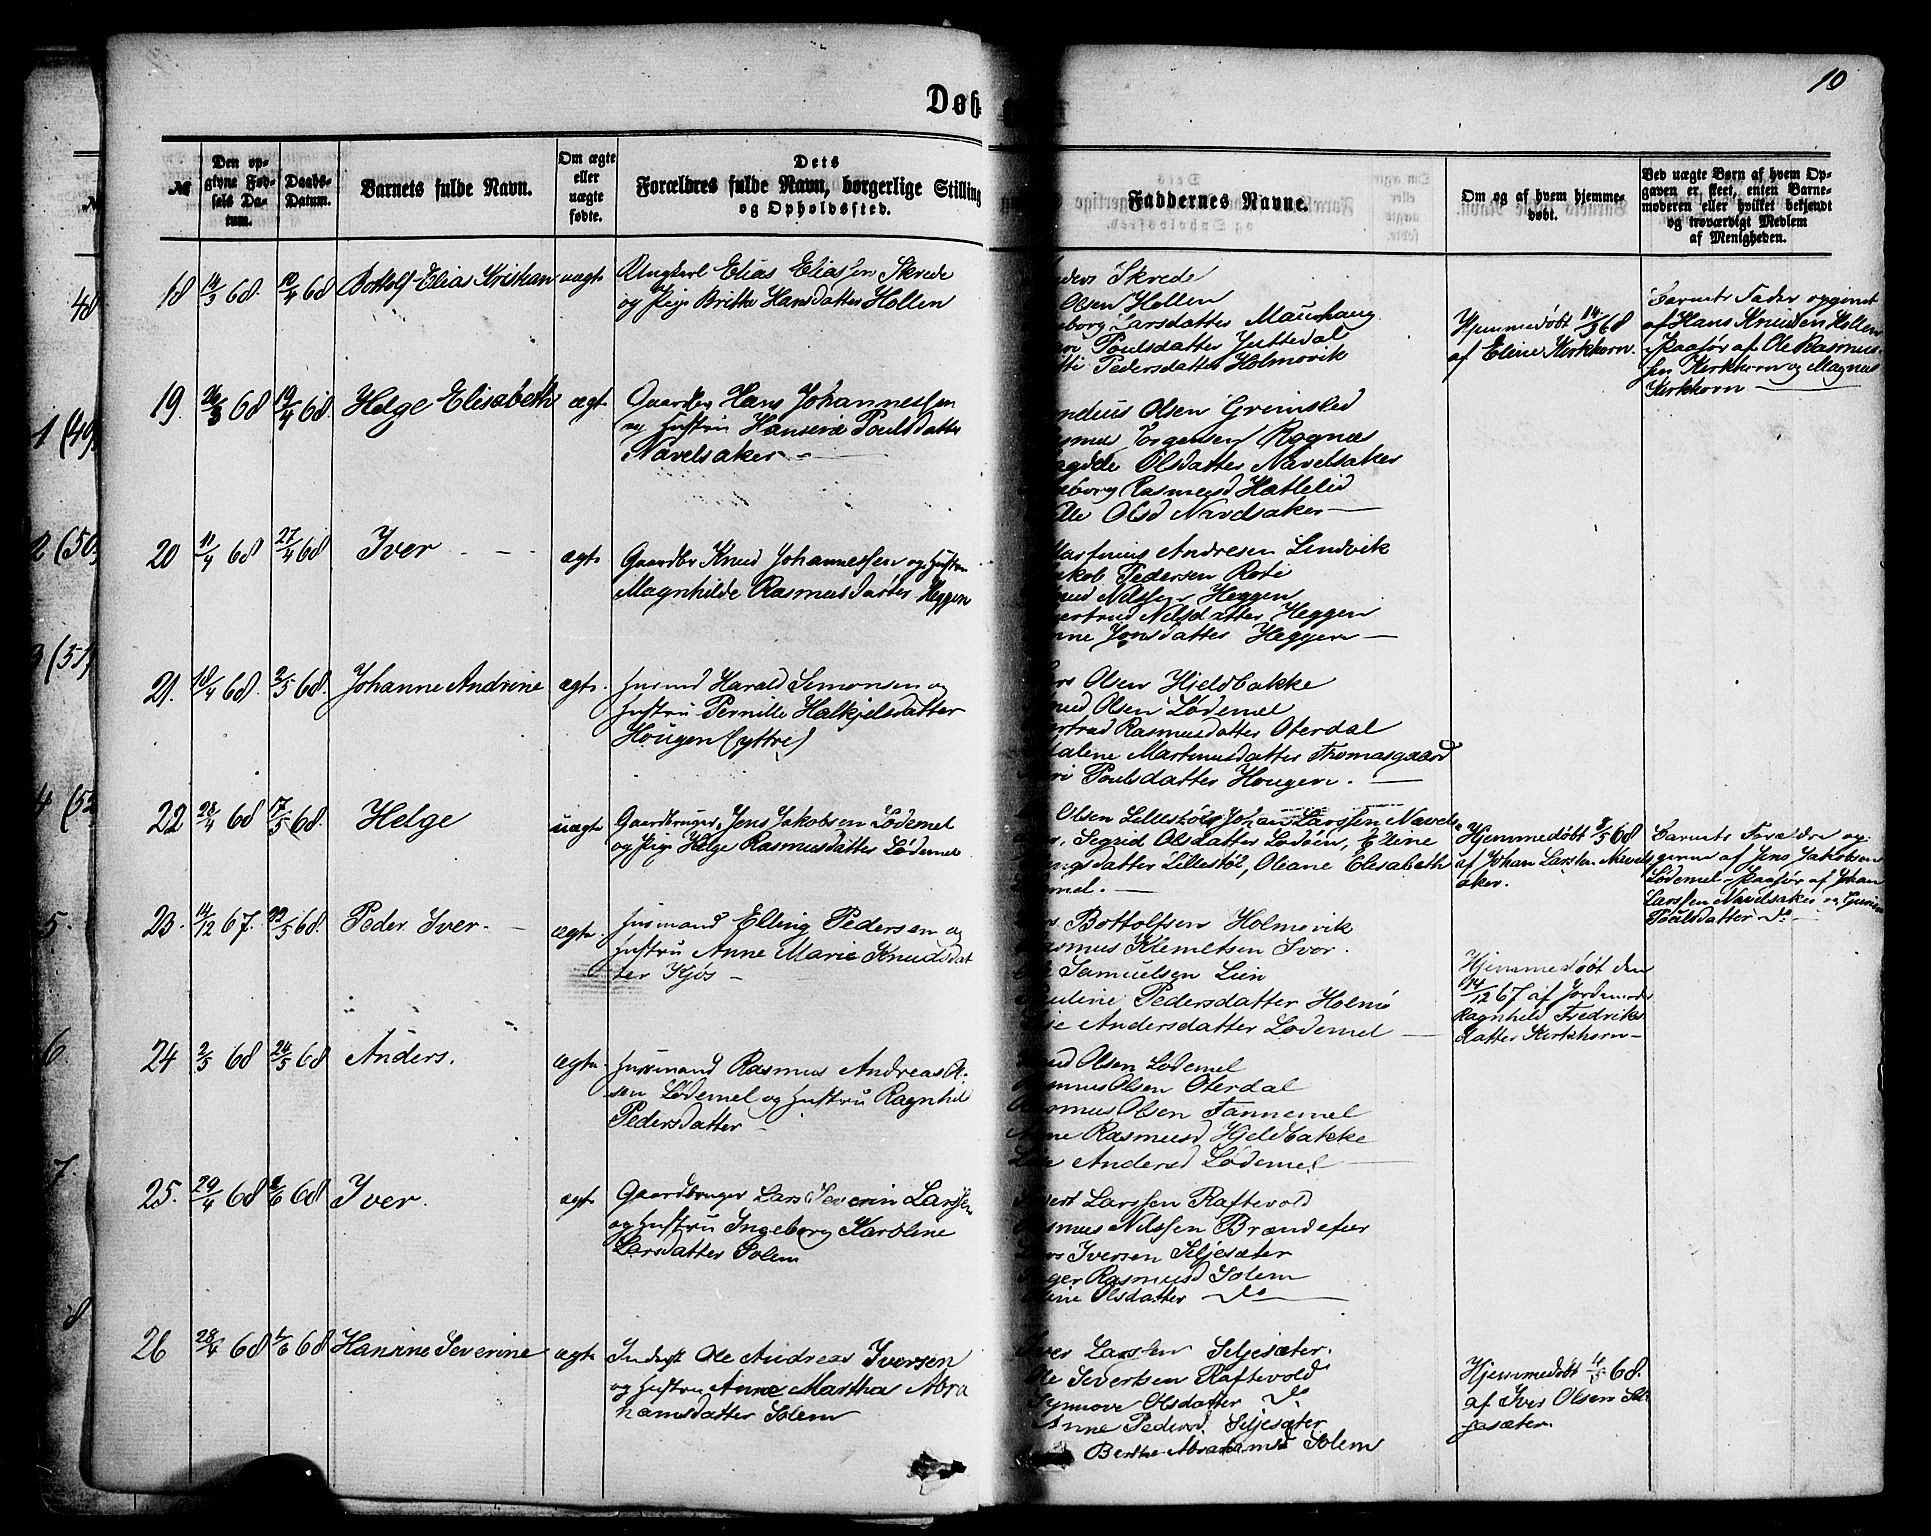 10
Døb
№
Den opgivne Fødsels Datum.
Daabs-Datum.
Barnets fulde Navn.
Om ægte eller uægte fødte.
Dets Forældres fulde Navn, borgerlige Stilling og Opholdssted.
Faddernes Navne.
Om og af hvem hjemmedøbt.
Ved uægte Børn af hvem Opgaven er skeet, enten Barnemoderen eller hvilket bekjendt og troværdigt Medlem af Menigheden.
48
18 14/3 68. 12/4 68 Bottolf Elias Kristian uægte
Ungkarl Elias Eliassen Skrede
og Pige Brithe Hansdatter Hollen
Skrede
Olsen Hollen
Larsdatter Maurhaug
Poulsdatter Juttedal
Pedersdatter Holmovik
Hjemmedøbt 14/3 68
af Eline Kirkhorn.
Barnets Fader opgivet
af Hans Knudsen Hollen
Paafør af Ole Rasmus-
sen Kirkhorn og Magnus
Kirkhorn
1 (49)
19. 26/3 68 19/4 68. Helge Elisabeth ægte
Gaardbr Hans Johannessen
og Hustru Hansine Poulsdatter
Navelsaker
Olsen Grimstad
Jørgensen Rognæs
Olsdatter Navelsaker
Rasmusd Hatlelid
Olsd Navelsaker
2 (50)
20 11/4 68 27/4 68 Iver ægte
Gaardbr Knud Johannessen og Hustru
Magnhilde Rasmusdatter Heggen
Martinius Andresen Lindvik
Jakob Pedersen Roti
Nilsen Heggen
Nilsdatter Heggen
Jonsdatter Heggen
(51)
21. 18/4 68. 3/5 68. Johanne Andrine ægte.
Husmd Harald Simonsen og
Hustru Pernille Halkjelsdatter
Hougen (yttre)
Olsen Hjeldbakke
Olsen Lødemel
Rasmusdatter Oterdal
Martinusdatter Thomasgaard
Poulsdatter Hougen.
4 (52)
22 28/4 68 17/5 68. Helge uægte
Gaardbruger Jens Jakobsen Lødemel
og Pige Helge Rasmusdatter Lødemel
Olsen Lillestøl, Johan Larssen Navels
Segrid Olsdatter Lødøen, Eline
datter Lillestøl, Oliane Elisabeth
Hjemmedøbt 8/5 68
af Johan Larssen Navels
aker.
Barnets Forældre op
givne af Jens Jakobsen
Lødemel. Paafør af Johan
Larssen Navelsaker og
Poulsdatter do
5.
23. 14/12 67. 22/5 68. Peder Iver. ægte.
Husmand Elling Pedersen og
Hustru Anne Marie Knudsdat
ter Kjøs
Bottolfsen Holmovik
Rasmus Klemetsen Ivor.
Samuelsen Lien
Pauline Pedersdatter Holmø
Andersdatter Lødemel
Hjemmedøbt den
14/12 67 af Jordemoder
Ragnhild Fredriks
datter Kirkhorn
6.
24 2/5 68 24/5 68 Anders. ægte.
Husmand Rasmus Andreas O-
sen Lødemel og Hustru Ragnhild
Pedersdatter
Knud Olsen Lødemel
Rasmus Olsen Oterdal
Rasmus Olsen Tannemel
Rasmusd Hjeldbakke
Andersd Lødemel
7.
25. 29/4 68 2/6 68 Iver. ægte
Gaardbruger Lars Severin Larssen
og Hustru Ingeborg Karoline
Larsdatter Solem
Sivert Larssen Raftevold
Rasmus Nilssen Brændefier
Iversen Siljesæter
Inger Rasmusd Solem
Olsdatter do
8
26 28/4 68 1/6 68 Hansine Severine ægte
Inderst Ole Andreas Iversen
og Hustru Anne Martha Abra
hamsdatter Solem
Iver Larssen Siljesæter.
Ole Sivertsen Raftevold
Synnove Olsdatter do
Anne Pedersd. Siljesæter
Berthe Abrahamsd Solem
Hjemmedøbt 4/5 68.
af Iver Olsen Sil
jesæter.